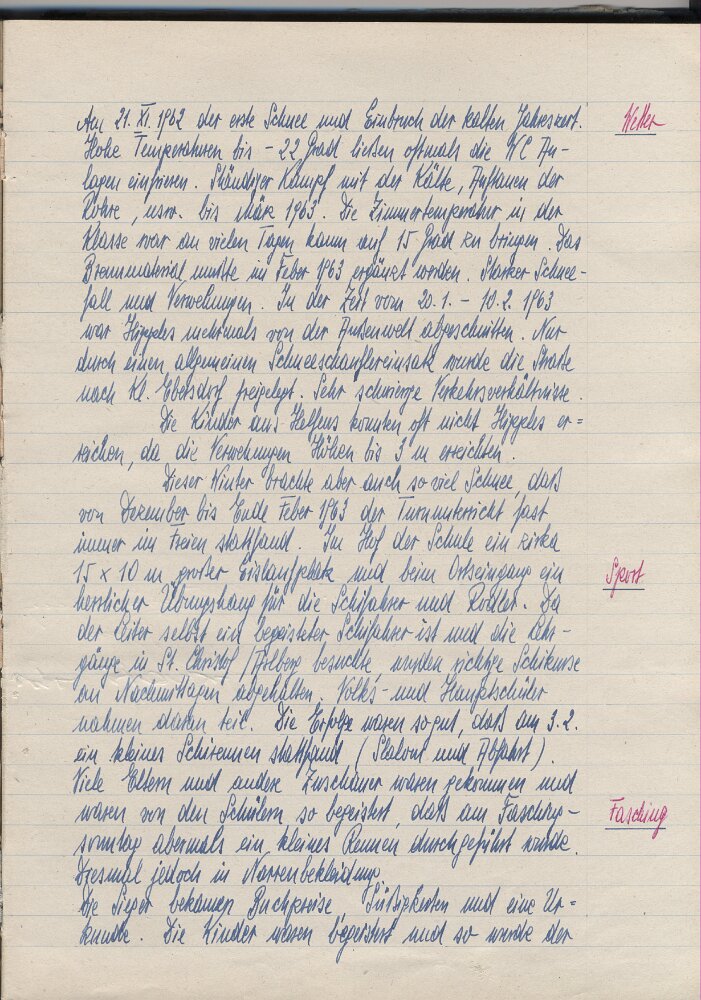 Am 21. XI. 1962 der erste Schnee und Einbruch der kalten Jahreszeit.
Wetter
Hohe Temperaturen bis -22 Grad ließen oftmals die WC An-
lagen einfrieren. Ständiger Kampf mit der Kälte, Auftauen der
Rohre, usw. bis März 1963. Die Zimmertemperatur in der
Klasse war an vielen Tagen kaum auf 15 Grad zu bringen. Das
Brennmaterial mußte im Feber 1963 ergänzt werden. Starker Schnee-
fall und Verwehungen. In der Zeit vom 20.1. - 10.2. 1963
war Hipples mehrmals von der Außenwelt abgeschnitten. Nur
durch einen allgemeinen Schneeschauflereinsatz wurde die Straße
nach Kl. Ebersdorf freigelegt. Sehr schwierige Verkehrsverhältnisse.
Die Kinder aus Helfens konnten oft nicht Hipples er=
reichen, da die Verwehungen Höhen bis 3 m erreichten.
Dieser Winter brachte aber auch so viel Schnee, daß
von Dezember bis Ende Feber 1963 der Turnunterricht fast
immer im Freien stattfand. Im Hof der Schule ein zirka
15 x 10 m großer Eislaufplatz und beim Ortseingang ein
Sport
herrlicher Übungshang für die Schifahrer und Rodler. Da
der Leiter selbst ein begeisteter Schifahrer ist und die Lehr-
gänge in St. Christof / Arlberg besuchte, wurden richtige Schikurse
an Nachmittagen abgehalten. Volks- und Hauptschüler
nahmen daran teil. Die Erfolge waren so gut, daß am 3.2.
ein kleines Schirennen stattfand (Slalom und Abfahrt).
Viele Eltern und andere Zuschauer waren gekommen und
waren von den Schülern so begeistert, daß am Fasching-
Fasching
sonntag abermals ein kleines Rennen durchgeführt wurde.
Diesmal jedoch in Narrenbekleidung.
Die Sieger bekamen Buchpreise Süßigkeiten und eine Ur=
kunde. Die Kinder waren begeistert und so wurde der